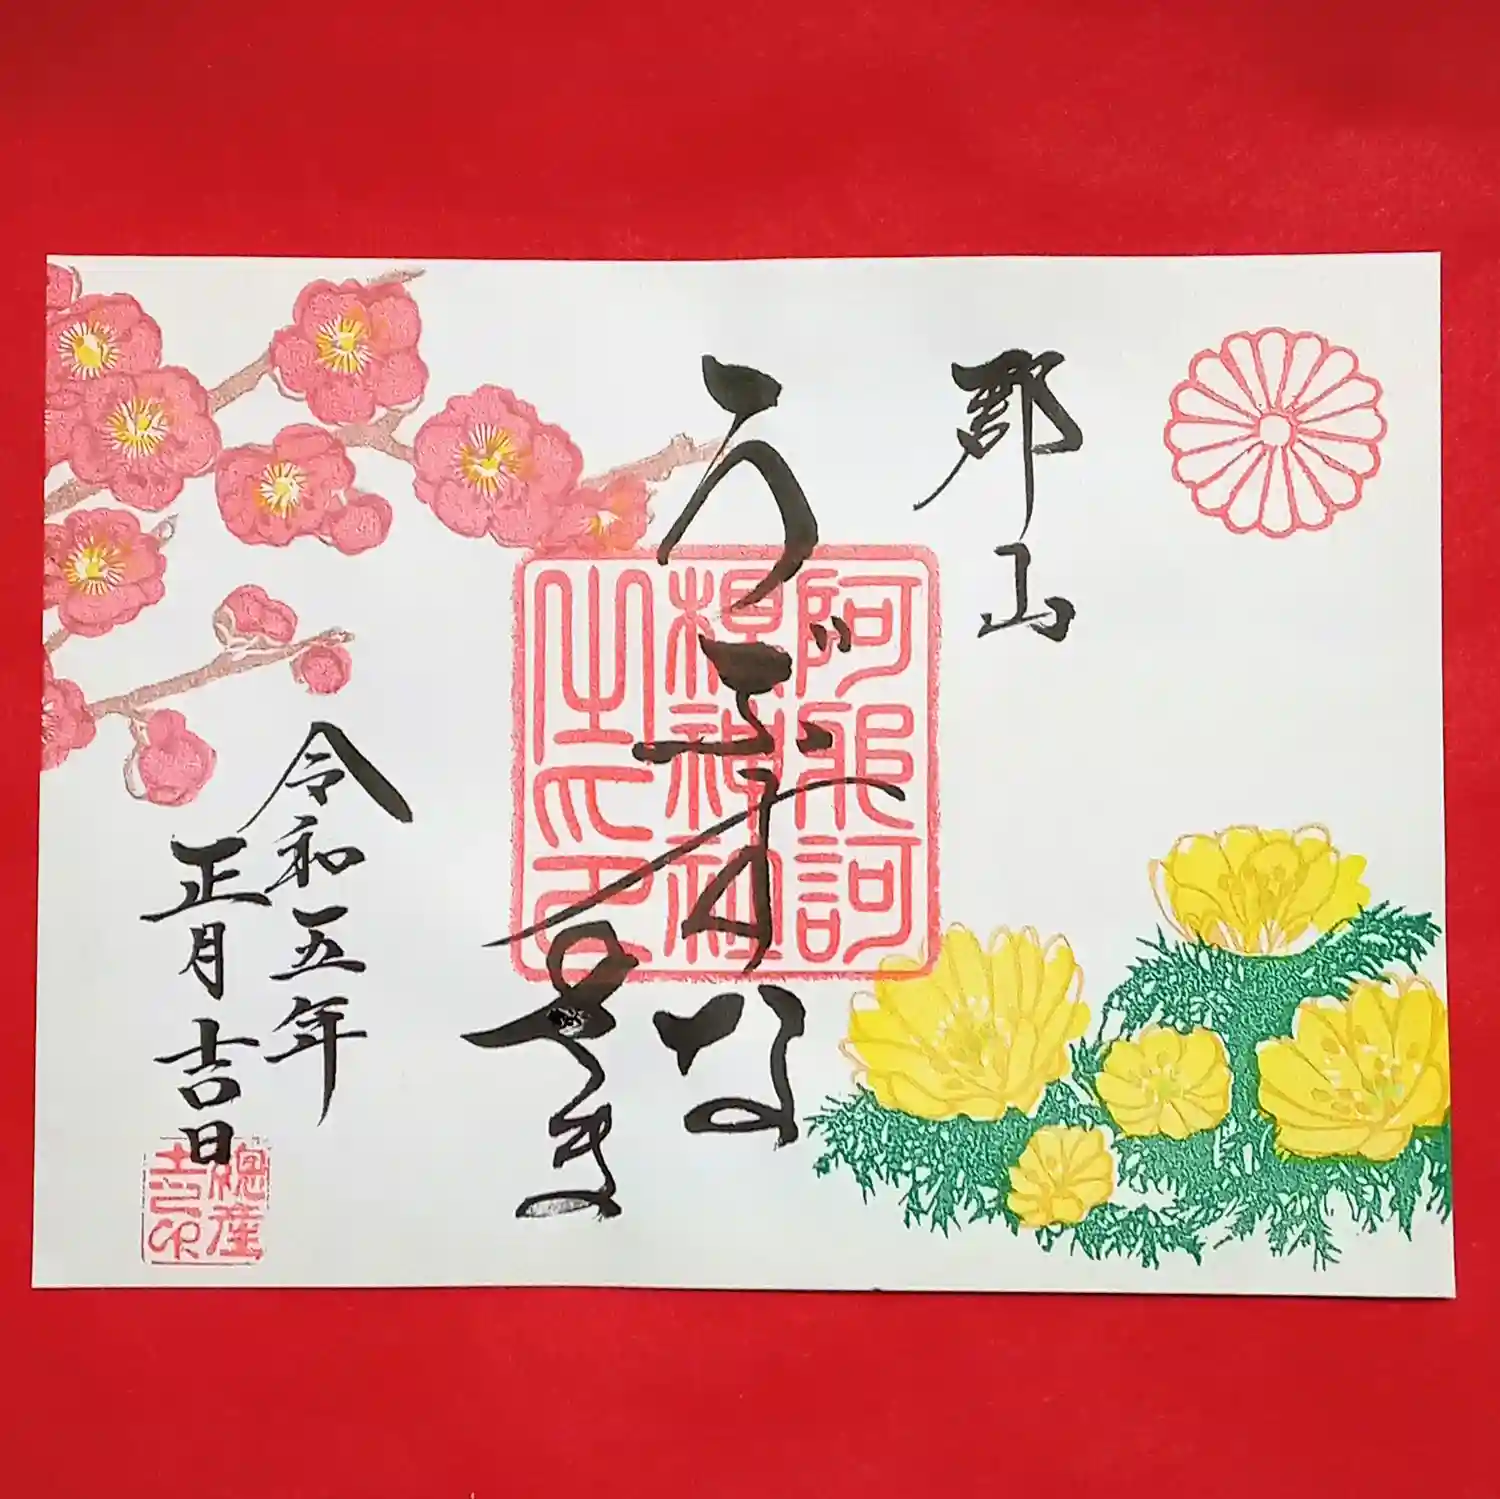 郡山
うぶすな
阿邪訶
根神社
之印
令和五年
正月吉日
總産
土之印